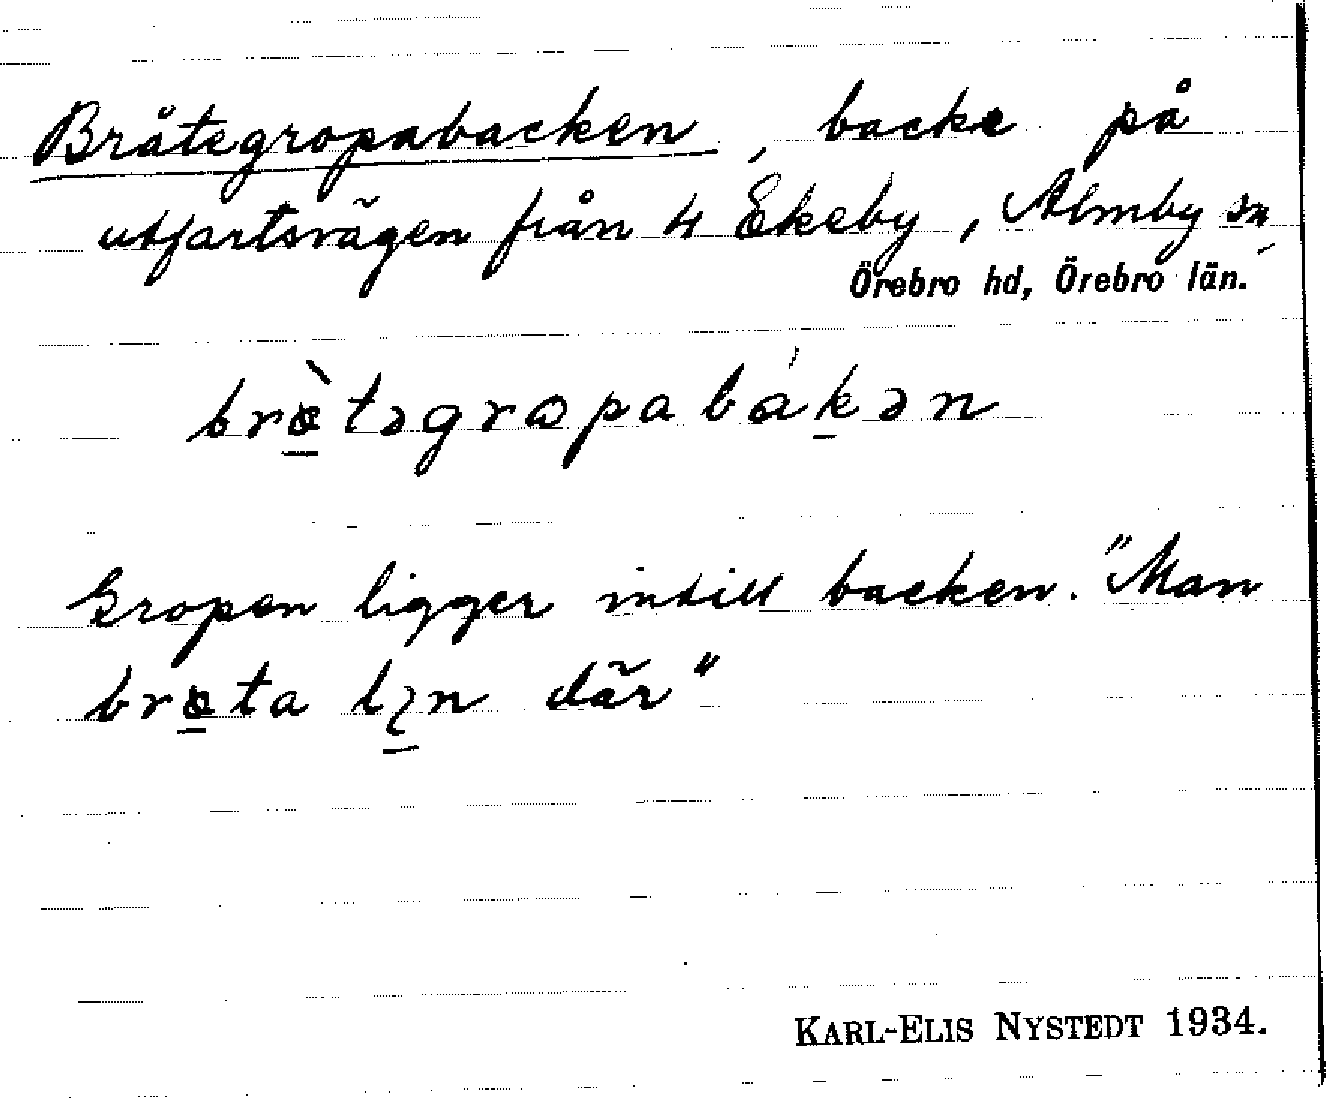 Bråtegropabacken, backe på
utfartsvägen från 4 Ekeby, Almby sn,
Örebro hd, Örebro län.
bròtəgropabákən
Gropen ligger intill backen. "Man
brota lin där"
KARL-ELIS NYSTEDT 1934.